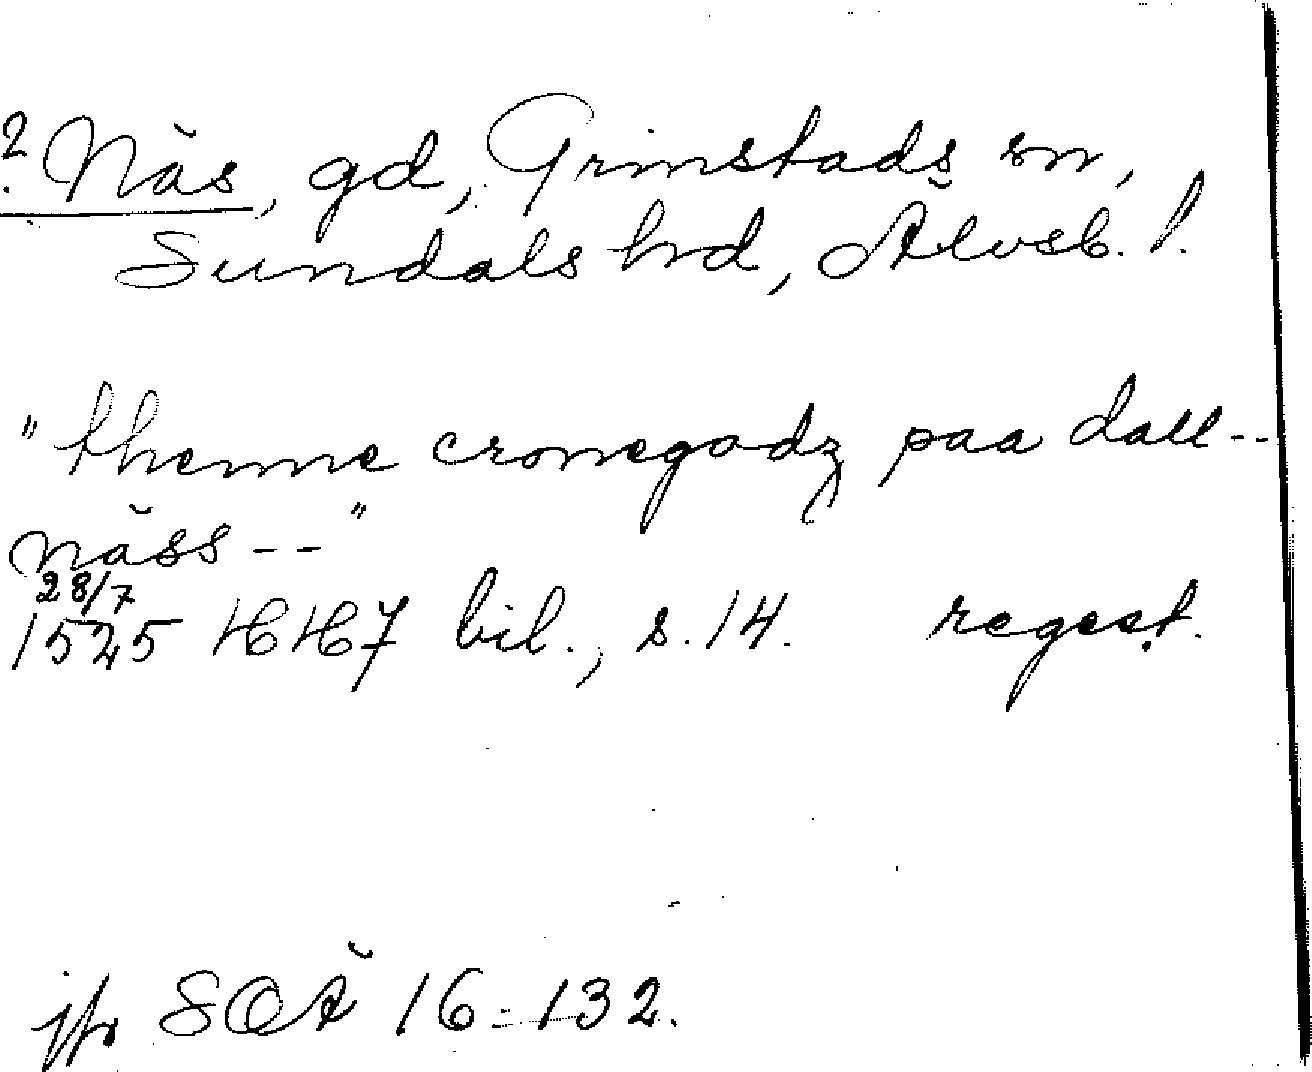 ? Näs, gd, Grinstads sn,
Sundals hd, Älvsb. l.
"thenne cronegodz paa dall--
näss--"
28/7
1525 HH7 bil., s. 14. regest.
jfr SOÄ 16:132.